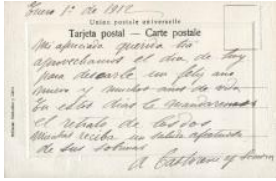 Enero 1º de 1912
Union postale universelle
Tarjeta postal — Carte postale
Mi apreciada y querida tía
aprovechamos el día de hoy
para desearle un feliz año
nuevo y muchos años de vida
En estos días le mandaremos
el retrato de todos
Mientras reciba un saludo afectuoso
de sus sobrinos